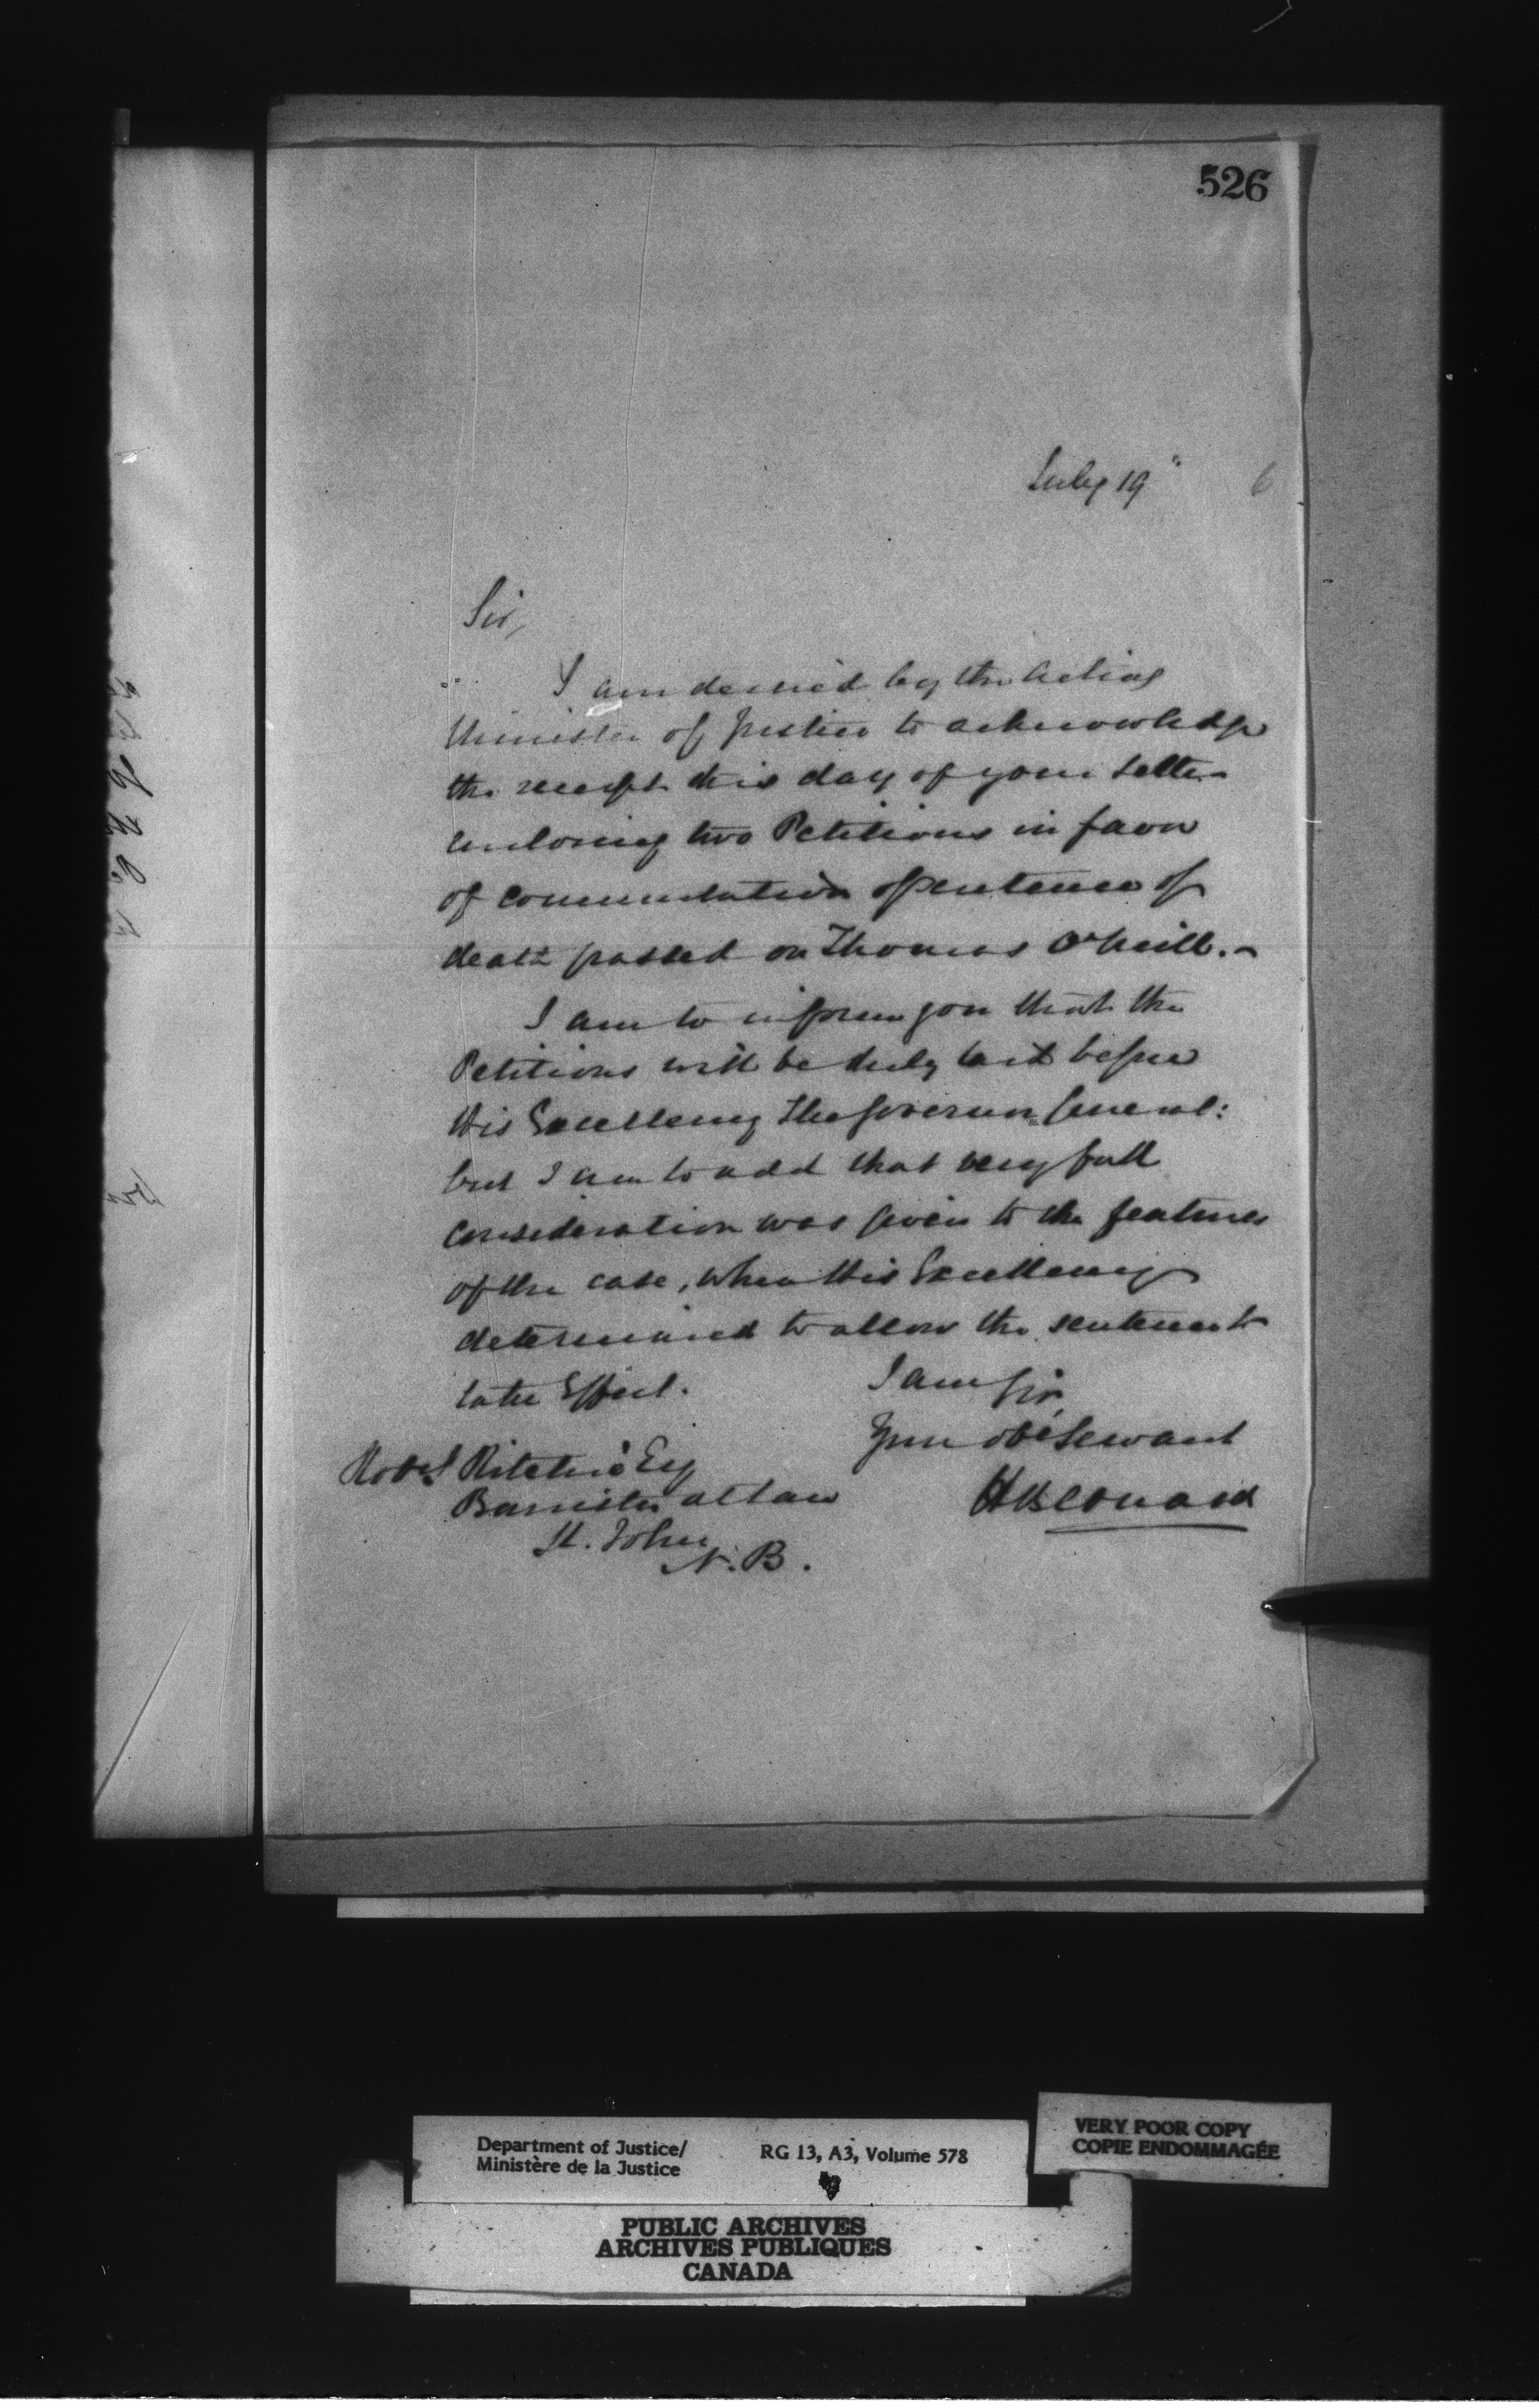 526
July 19"
6
Sir,
I am desired by the Acting
Minister of Justice to acknowledge
the receipt this day of your letter
enclosing two Petitions in favor
of commutation of sentence of
death passed on Thomas O'Neill.-
I am to inform you that the
Petitions will be duly laid before
His Excellency The Governor General:
but I am to add that very full
consideration was given to the features
of the case, when His Excellency
determined to allow the sentence to
take Effect.
I am Sir,
Your obt Servant
H Bernard
Robt Ritchie Esq
Barrister at Law
St. John
N.B.
Department of Justice/
Ministère de la Justice
RG 13, A3, Volume 578
VERY POOR COPY
COPIE ENDOMMAGÉE
PUBLIC ARCHIVES
ARCHIVES PUBLIQUES
CANADA